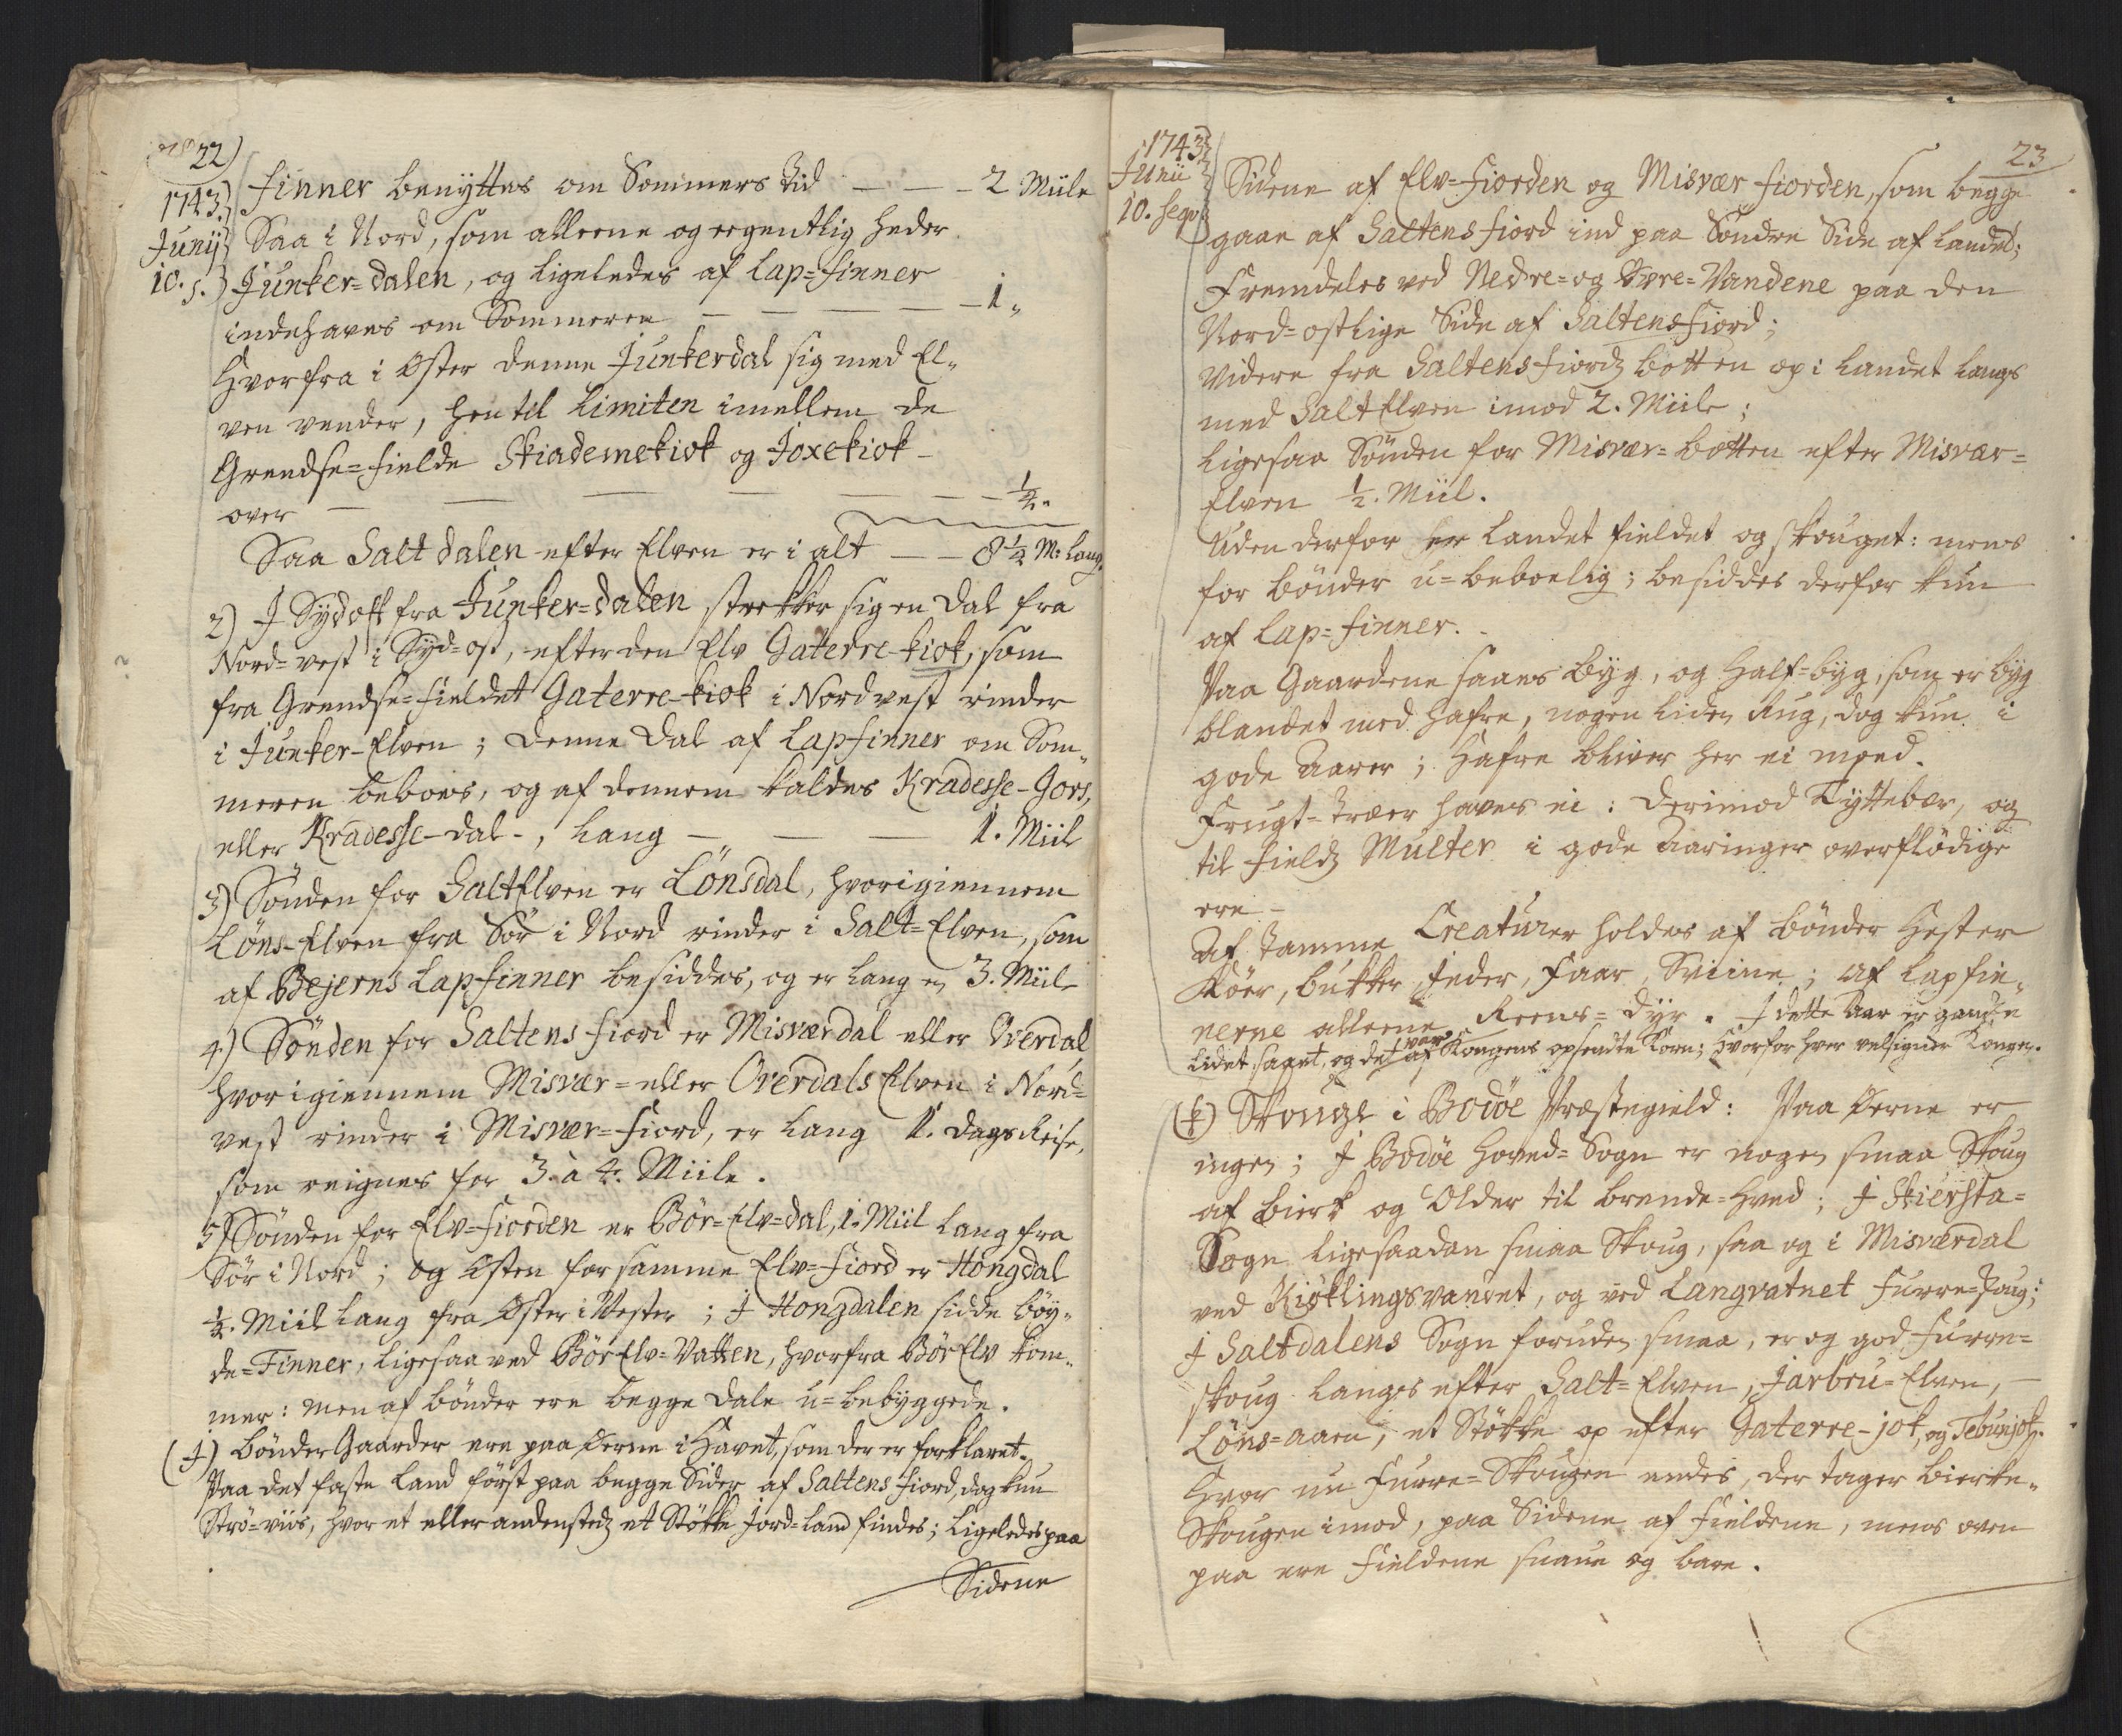 22)
1743.
Junij
10. s.
Finner benyttes om Sommers Tid — — — 2 Miile
Saa i Nord, som alleene og eegentlig heder
Junker=dalen, og ligeledes af Lap=finner
indehaves om Sommeren — — — — 1„
Hvorfra i Øster denne Junkerdal sig med El„
ven vender, hen til Limiten imellem de
Grendse=fielde Skiademekiok og Joxekiok –
over — — — — — — ½„
Saa Saltdalen efter Elven er i alt — — 8½ M: lang.
2) J Sydost fra Junker=dalen strekker sig en Dal fra
Nord=vest i Syd=ost, efter den Elv Gaterre-kiok, som
fra Grendse=fieldet Gaterre-kiok i Nordvest rinder
i Junker-Elven; denne Dal af Lapfinner om Som„
meren beboes, og af dennem kaldes Kradesse-Gors,
eller Kradesse-dal-, lang — — — 1. Miil
3) Sønden for SaltElven er Lönsdal, hvorigiennem
Löns-Elven fra Sør i Nord rinder i Salt=Elven, som
af Bejerns Lapfinner besiddes, og er lang en 3. Miile
4) Sønden for Saltens fiord er Misværdal eller Overdal
hvorigiennem Misvær=eller Overdals Elven i Nord=
vest rinder i Misvær=fiord, er lang 1. dags Reise,
som reignes for 3. à 4. Miile.
5) Sønden for Elv=fiorden er Bör=Elv=dal, 1. Miil lang fra
Sør i Nord; og Østen for samme Elv=fiord er Hongdal
½. Miil lang fra Øster i Vester; J Hongdalen sidde böy„
de=Finner, ligesaa ved BörElv=Vatten, hvorfra BörElv kom„
mer: men af bönder ere begge Dale u=bebyggede.
(J) Bönder Gaarder ere paa Øerne i Havet, som der er forklaret.
Paa det faste Land först paa begge Sider af Saltens fiord, dog kun
Strö=viis, hvor et eller andenstedz et Stökke Jord=land findes; ligeledes paa
Sidene
1743
Junii
10. seqv
23
Sidene af Elv=fiorden og Misvær fiorden, som begge
gaae af Saltens fiord ind paa Søndre Side af Landet;
Fremdeles ved Nedre=og Øvre=Vandene paa den
Nord=ostlige Side af Saltensfiord;
Videre fra Saltens fiordz botten op i Landet langs
med SaltElven imod 2. Miile;
Ligesaa Sønden for Misvær=botten efter Misvær=
Elven ½. Miil.
Uden derfor er Landet fieldet og skouget: mens
for bönder u=beboelig; besiddes derfor kun
af Lap=finner. -
Paa Gaardene saaes Byg, og Half=byg, som er byg
blandet med Hafre, nogen liden Rug, dog kun i
gode Aarer; Hafre bliver her ei moed.
Frugt=træer haves ei: derimod Tyttebær, og
til fieldz Multer i gode Aaringer overflödige
ere -
Af Tamme Creaturer holdes af Bönder Hester
Kiöer, bukker, Jeder, Faar, Sviine; af Lapfin„
nerne alleene Reens=Dyr. J dette Aar er gandske
lidet saaet, og det var af Kongens opsendte Korn; hvorfor hver velsigner Kongen.
(k) Skouge i Bodöe Præstegield: Paa Øerne er
ingen; J Bodöe Hoved=Sogn er nogen smaa Skoug
af Bierk og Older til brende=hved; J Skiersta=
Sogn ligesaadan smaa Skoug, saa og i Misværdal
ved Kiöklingsvandet, og ved Langvatnet Furre=skoug;
J Saltdalens Sogn foruden smaa, er og god Furre=
skoug langes efter Salt=Elven, Jarbru=Elven, —
Löns=aaen, et Stökke op efter Gaterre-jok, og Teburjok.
Hvor nu Furre=Skougen endes, der tager bierke„
Skougen imod, paa Sidene af fieldene, mens oven
paa ere Fieldene snaue og bare.